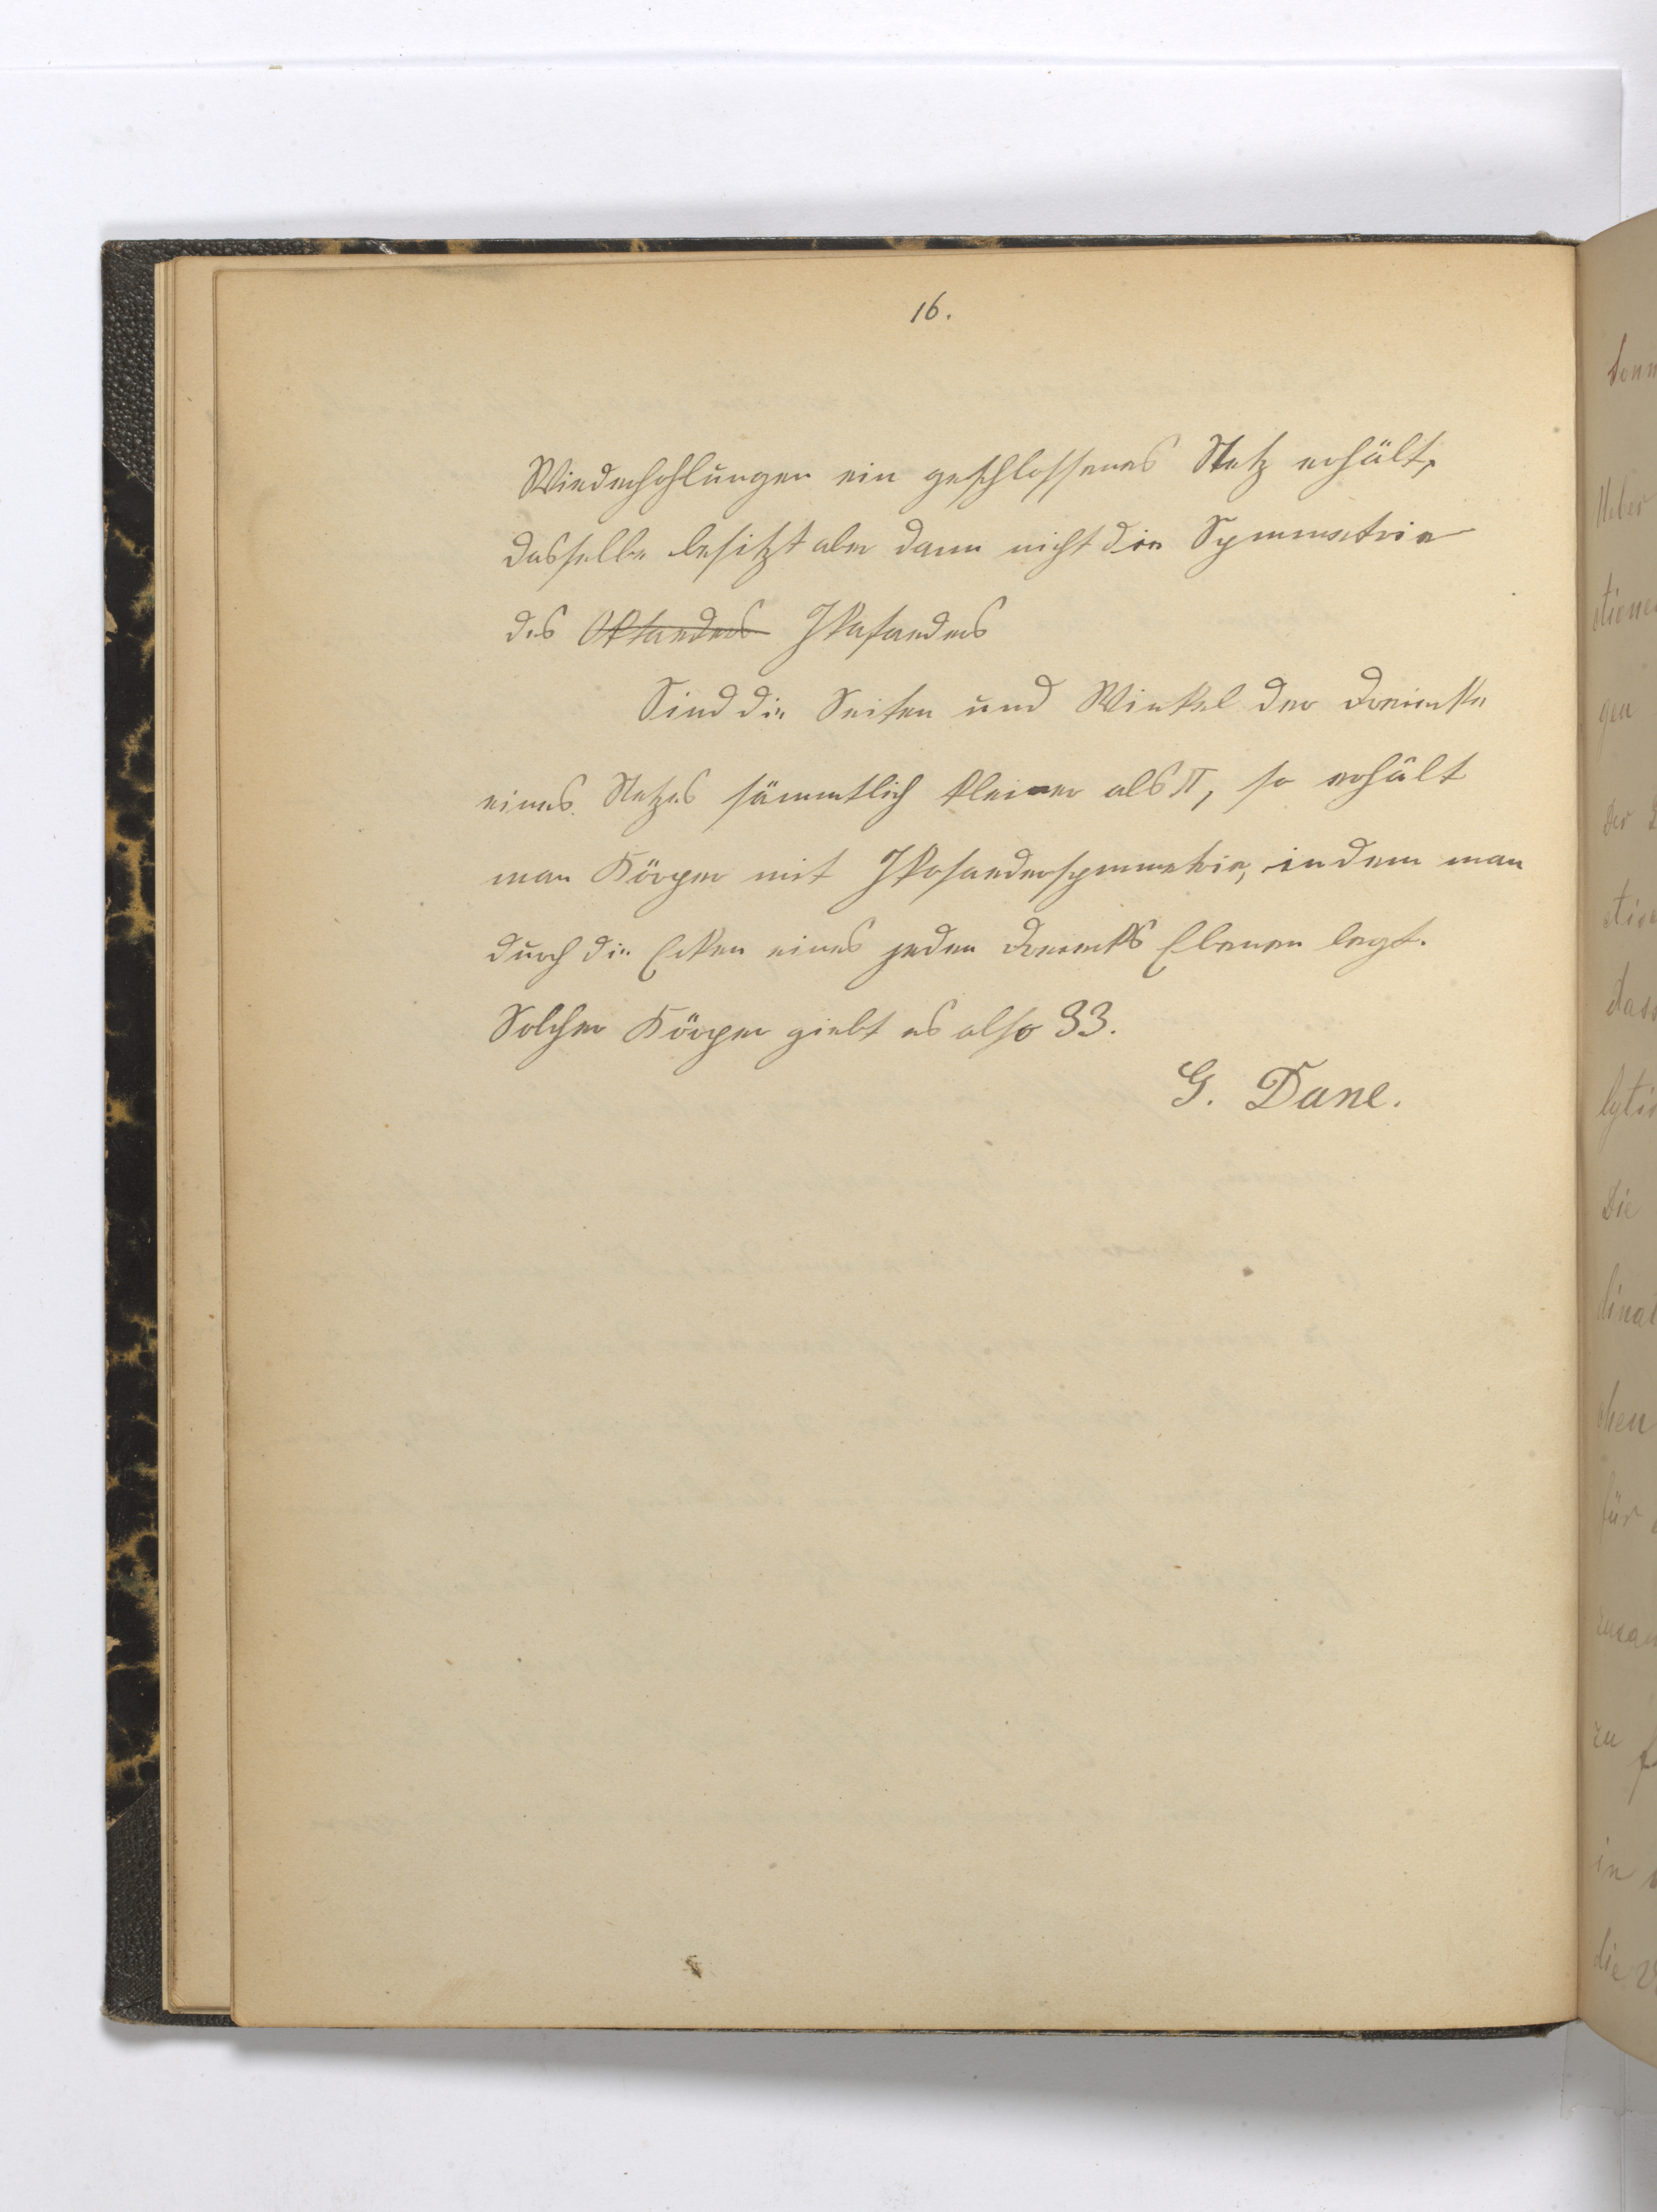 16.
Wiederhohlungen ein geschlossenes Netz erhält,
dasselbe besitzt aber dann nicht die Symmetrie
des Oktaeders Ikosaeders
Sind die Seiten und Winkel der Dreiecke
eines Netzes sämmtlich kleiner als π, so erhält
man Körper mit Ikosaedersymmetrie, indem man
durch die Ecken eines jeden Dreiecks Ebenen legt.
Solcher Körper giebt es also 33.
G. Dane.
Ueber
gen
Der
dass
Die
für
zu
in
die